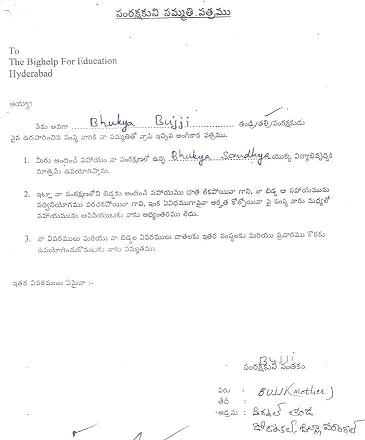 సంరక్షకుని సమ్మతి పత్రము
To
The Bighelp For Education
Hyderabad
అయ్యా!
నేను అనగా Bhukya Bujji తండ్రి/తల్లి/సంరక్షకుడు
పైన ఉదహరించిన సంస్థ వారికి నా సమ్మతితో వ్రాసి ఇచ్చిన అంగీకార పత్రము.
1. మీరు అందించే సహాయం నా సంరక్షణలో ఉన్న Bhukya Sandhya యొక్క విద్యాభివృద్ధికి
మాత్రమే ఉపయోగిస్తాను.
2. ఇట్లా నా సంరక్షణలోని బిడ్డకు అందించే సహాయము దాత లేకపోయినా గాని, నా బిడ్డ ఆ సహాయమును
సద్వినియోగము పరచకపోయినా గాని, ఇంక ఏవిధముగానైనా అర్హత కోల్పోయినా పై సంస్థ వారు మధ్యలో
సహాయమును ఆపివేయుటకు నాకు అభ్యంతరము లేదు.
3. నా వివరములు మరియు నా బిడ్డల వివరములు దాతలకు ఇతర సంస్థలకు మరియు ప్రచారము కొరకు
ఉపయోగించుకొనుటకు నాకు సమ్మతము.
ఇతర వివరములు ఏమైనా :-
Bujji
సంరక్షకుని సంతకం
పేరు : Bujji (mother)
తేదీ :
అడ్రసు :